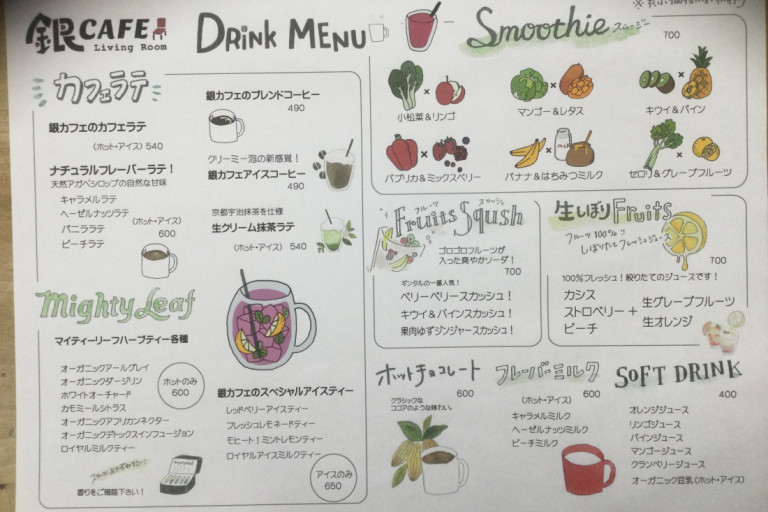 銀CAFE
Living Room
DRINK MENU
カフェラテ
銀カフェのカフェラテ
(ホット・アイス) 540
ナチュラルフレーバーラテ!
天然アガベシロップの自然な甘味
キャラメルラテ
ヘーゼルナッツラテ
バニララテ
ピーチラテ
(ホット・アイス)
600
銀カフェのブレンドコーヒー
490
クリーミー泡の新感覚!
銀カフェアイスコーヒー
490
京都宇治抹茶を仕様
生クリーム抹茶ラテ
(ホット・アイス) 540
Mighty Leaf
マイティーリーフハーブティー各種
オーガニックアールグレイ
オーガニックダージリン
ホワイトオーチャード
カモミールシトラス
オーガニックアフリカンネクター
オーガニックデトックスインフュージョン
ロイヤルミルクティー
ホットのみ
600
香りをご確認下さい!
銀カフェのスペシャルアイスティー
レッドベリーアイスティー
フレッシュレモネードティー
モヒート!ミントレモンティー
ロイヤルアイスミルクティー
アイスのみ
650
Smoothie スムージー
700
小松菜&リンゴ
マンゴー&レタス
キウイ&パイン
パプリカ&ミックスベリー
バナナ&はちみつミルク
セロリ&グレープフルーツ
フルーツ スカッシュ
Fruits Sqush
ゴロゴロフルーツが
入った爽やかソーダ!
700
ギンタルの一番人気!
ベリーベリースカッシュ!
キウイ&パインスカッシュ!
果肉ゆずジンジャースカッシュ!
生しぼりFruits
フルーツ100%!!
しぼりたてフレッシュジュース
700
100%フレッシュ!絞りたてのジュースです!
カシス
ストロベリー
ピーチ
+
生グレープフルーツ
生オレンジ
ホットチョコレート
600
クラシックな
ココアのような味わい。
フレーバーミルク
(ホット・アイス) 600
キャラメルミルク
ヘーゼルナッツミルク
ピーチミルク
SOFT DRINK
400
オレンジジュース
リンゴジュース
パインジュース
マンゴージュース
クランベリージュース
オーガニック豆乳(ホット・アイス)